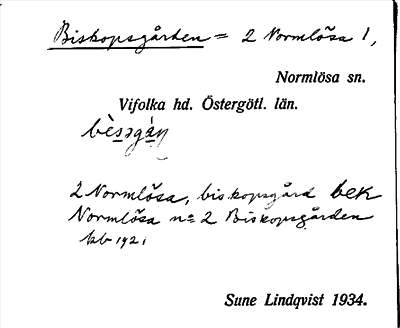 Biskopsgården = 2 Normlösa 1,
Normlösa sn.
Vifolka hd. Östergötl. län.
2 Normlösa, biskopsgård bek
Normlösa n= 2 Biskopsgården
kb 1921
Sune Lindqvist 1934.